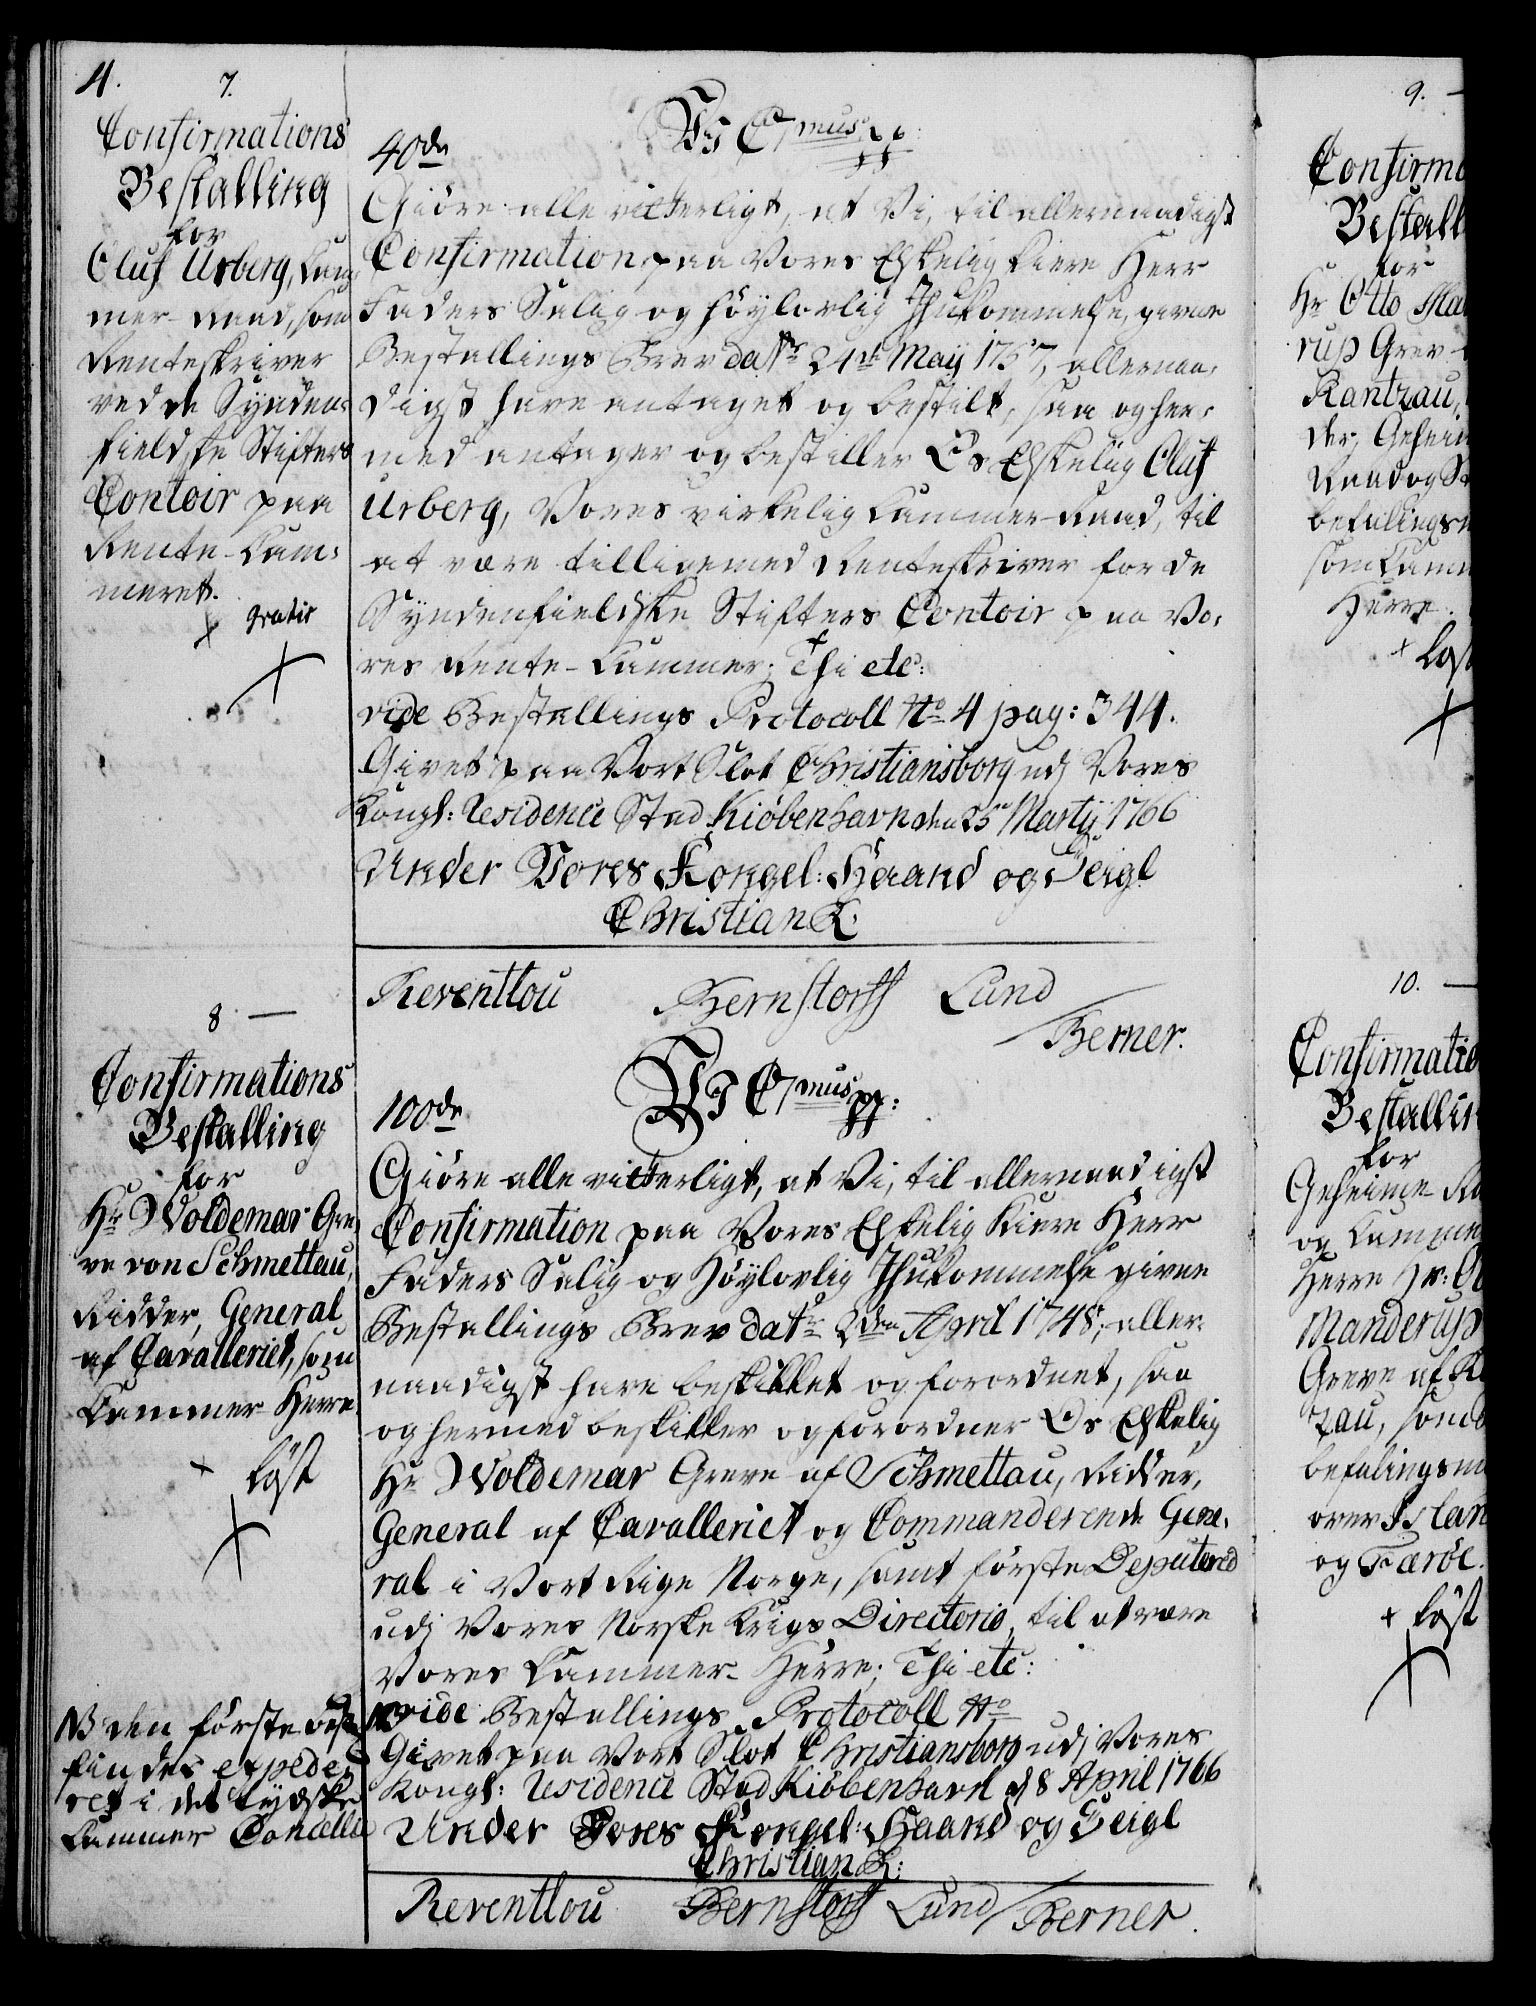 4.
7.
Confirmations
Bestalling
for
Oluf Urberg, Cam
mer-Raad, som
Renteskriver
ved de Synden-
fieldske Stifters
Contoir paa
Rente-Cam-
meret.
+ gratis
40de
Vi C 7mus pp:
Giöre alle vitterligt, at Vi, til allernaadigst
Confirmation paa Vores Elskelig kiere Herr
Faders Salig og Höylovlig Ihukommelse, givne
Bestallings Brev dat: 24de May 1757, allernaa-
digst have antaget og bestilt, saa og her-
med antager og bestiller Os Elskelig Oluf
Urberg, Vores virkelig Cammer-Raad, til
at være tilligemed Renteskriver for de
Syndenfieldske Stifters Contoir paa Vo-
res Rente-Cammer; Thi etc:
vide Bestallings Protocoll No 4 pag: 344.
Givet paa Vort Slot Christiansborg udj Vores
Kongl: Residence Stad Kiöbenhavn den 25 Martij 1766
Under Vores Kongel: Haand og Seigl
Christian R:
Reventlou Bernstorff Lund
/Berner.
8 —
Confirmations
Bestalling
for
Hr Woldemar Gre
ve von Schmettau,
Ridder, General
af Cavalleriet, som
Cammer Herre.
+ löst
NB den förste best
findes expede-
ret i det tydske
Cammer Cancellie
100de
Vi C 7mus pp:
Giöre alle vitterligt, at Vi, til allernaadigst
Confirmation paa Vores Elskelig Kiere Herr
Faders Salig og Höylovlig Ihukommelse givne
Bestallings Brev dat: 2den April 1748, aller-
naadigst have beskikket og forordnet, saa
og hermed beskikker og forordner Os Elskelig
Hr Woldemar Greve af Schmettau, Ridder,
General af Cavalleriet og Commanderende Gene-
ral i Vort Rige Norge, samt förste Deputered
udj Vores Norske Krigs Directorio, til at være
Vores Cammer-Herre; Thi etc:
vide Bestallings Protocoll No
Givet paa Vort Slot Christiansborg udj Vores
Kongl: Residence Stad Kiöbenhavn d 8 April 1766
Under Vores Kongel: Haand og Seigl
Christian R:
Reventlou Bernstorff Lund /Berner.
9. —
Confirma
Bestall
for
Hr Otto Man
rup Grev
Rantzau,
der, Geheim
Raad og St
befalingsm
som Camm
Herre.
+ löst
10. —
Confirmatio
Bestallin
for
Geheime Ra
og Cammer
Herre Hr: O
Manderup
Greve af Ra
zau, som
befalingsm
over Islan
og Færöe.
+ löst